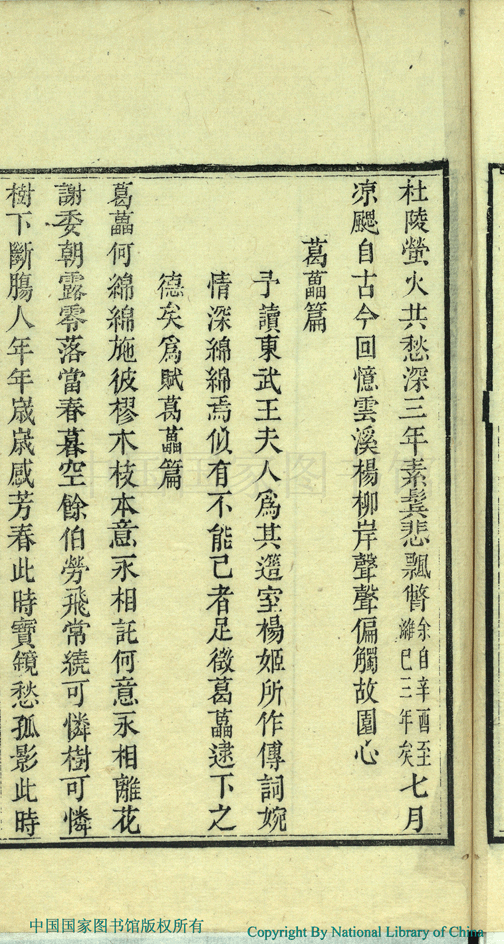 杜陵螢火共愁深三年素鬂悲飄瞥余自辛酉至濰已三年矣七月
凉颸自古今回憶雲溪楊柳岸聲聲偏觸故園心
葛藟篇
予讀東武王夫人爲其簉室楊姬所作傳詞婉
情深綿綿焉似有不能已者足徵葛藟逮下之
德矣爲賦葛藟篇
葛藟何綿綿施彼樛木枝本意永相託何意永相離花
謝委朝露零落當春暮空餘伯勞飛常繞可憐樹可憐
樹下斷腸人年年歲歲感芳春此時寶鏡愁孤影此時
中国国家图书馆版权所有
Copyright By National Library of China